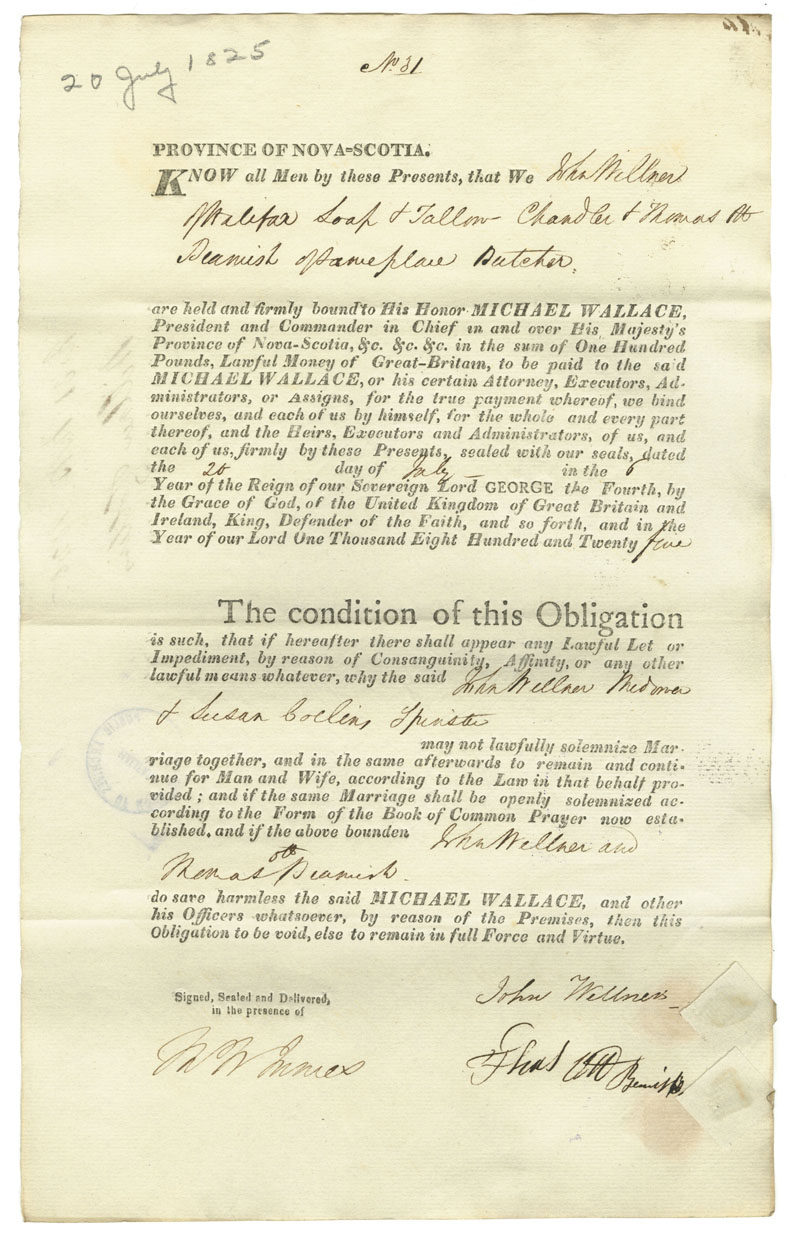 20 July 1825
No. 31
PROVINCE OF NOVA-SCOTIA.
KNOW all Men by these Presents, that We John Wellner
of Halifax Soap & Tallow Chandler & Thomas Ott
Beamish of same place Butcher.
are held and firmly bound to His Honor MICHAEL WALLACE,
President and Commander in Chief in and over His Majesty's
Province of Nova-Scotia, &c. &c. &c. in the sum of One Hundred
Pounds, Lawful Money of Great-Britain, to be paid to the said
MICHAEL WALLACE, or his certain Attorney, Executors, Ad-
ministrators, or Assigns, for the true payment whereof, we bind
ourselves, and each of us by himself, for the whole and every part
thereof, and the Heirs, Executors and Administrators, of us, and
each of us, firmly by these Presents, sealed with our seals, dated
the 20 day of July in the 6
Year of the Reign of our Sovereign Lord GEORGE the Fourth, by
the Grace of God, of the United Kingdom of Great Britain and
Ireland, King, Defender of the Faith, and so forth, and in the
Year of our Lord One Thousand Eight Hundred and Twenty five
The condition of this Obligation
is such, that if hereafter there shall appear any Lawful Let or
Impediment, by reason of Consanguinity, Affinity, or any other
lawful means whatever, why the said John Wellner Widower
& Susan Collins Spinster
may not lawfully solemnize Mar-
riage together, and in the same afterwards to remain and conti-
nue for Man and Wife, according to the Law in that behalf pro-
vided; and if the same Marriage shall be openly solemnized ac-
cording to the Form of the Book of Common Prayer now esta-
blished, and if the above bounden John Wellner and
Thomas Ott Beamish.
do save harmless the said MICHAEL WALLACE, and other
his Officers whatsoever, by reason of the Premises, then this
Obligation to be void, else to remain in full Force and Virtue.
Signed, Sealed and Delivered,
in the presence of
John Wellner
Thos Ott Beamish